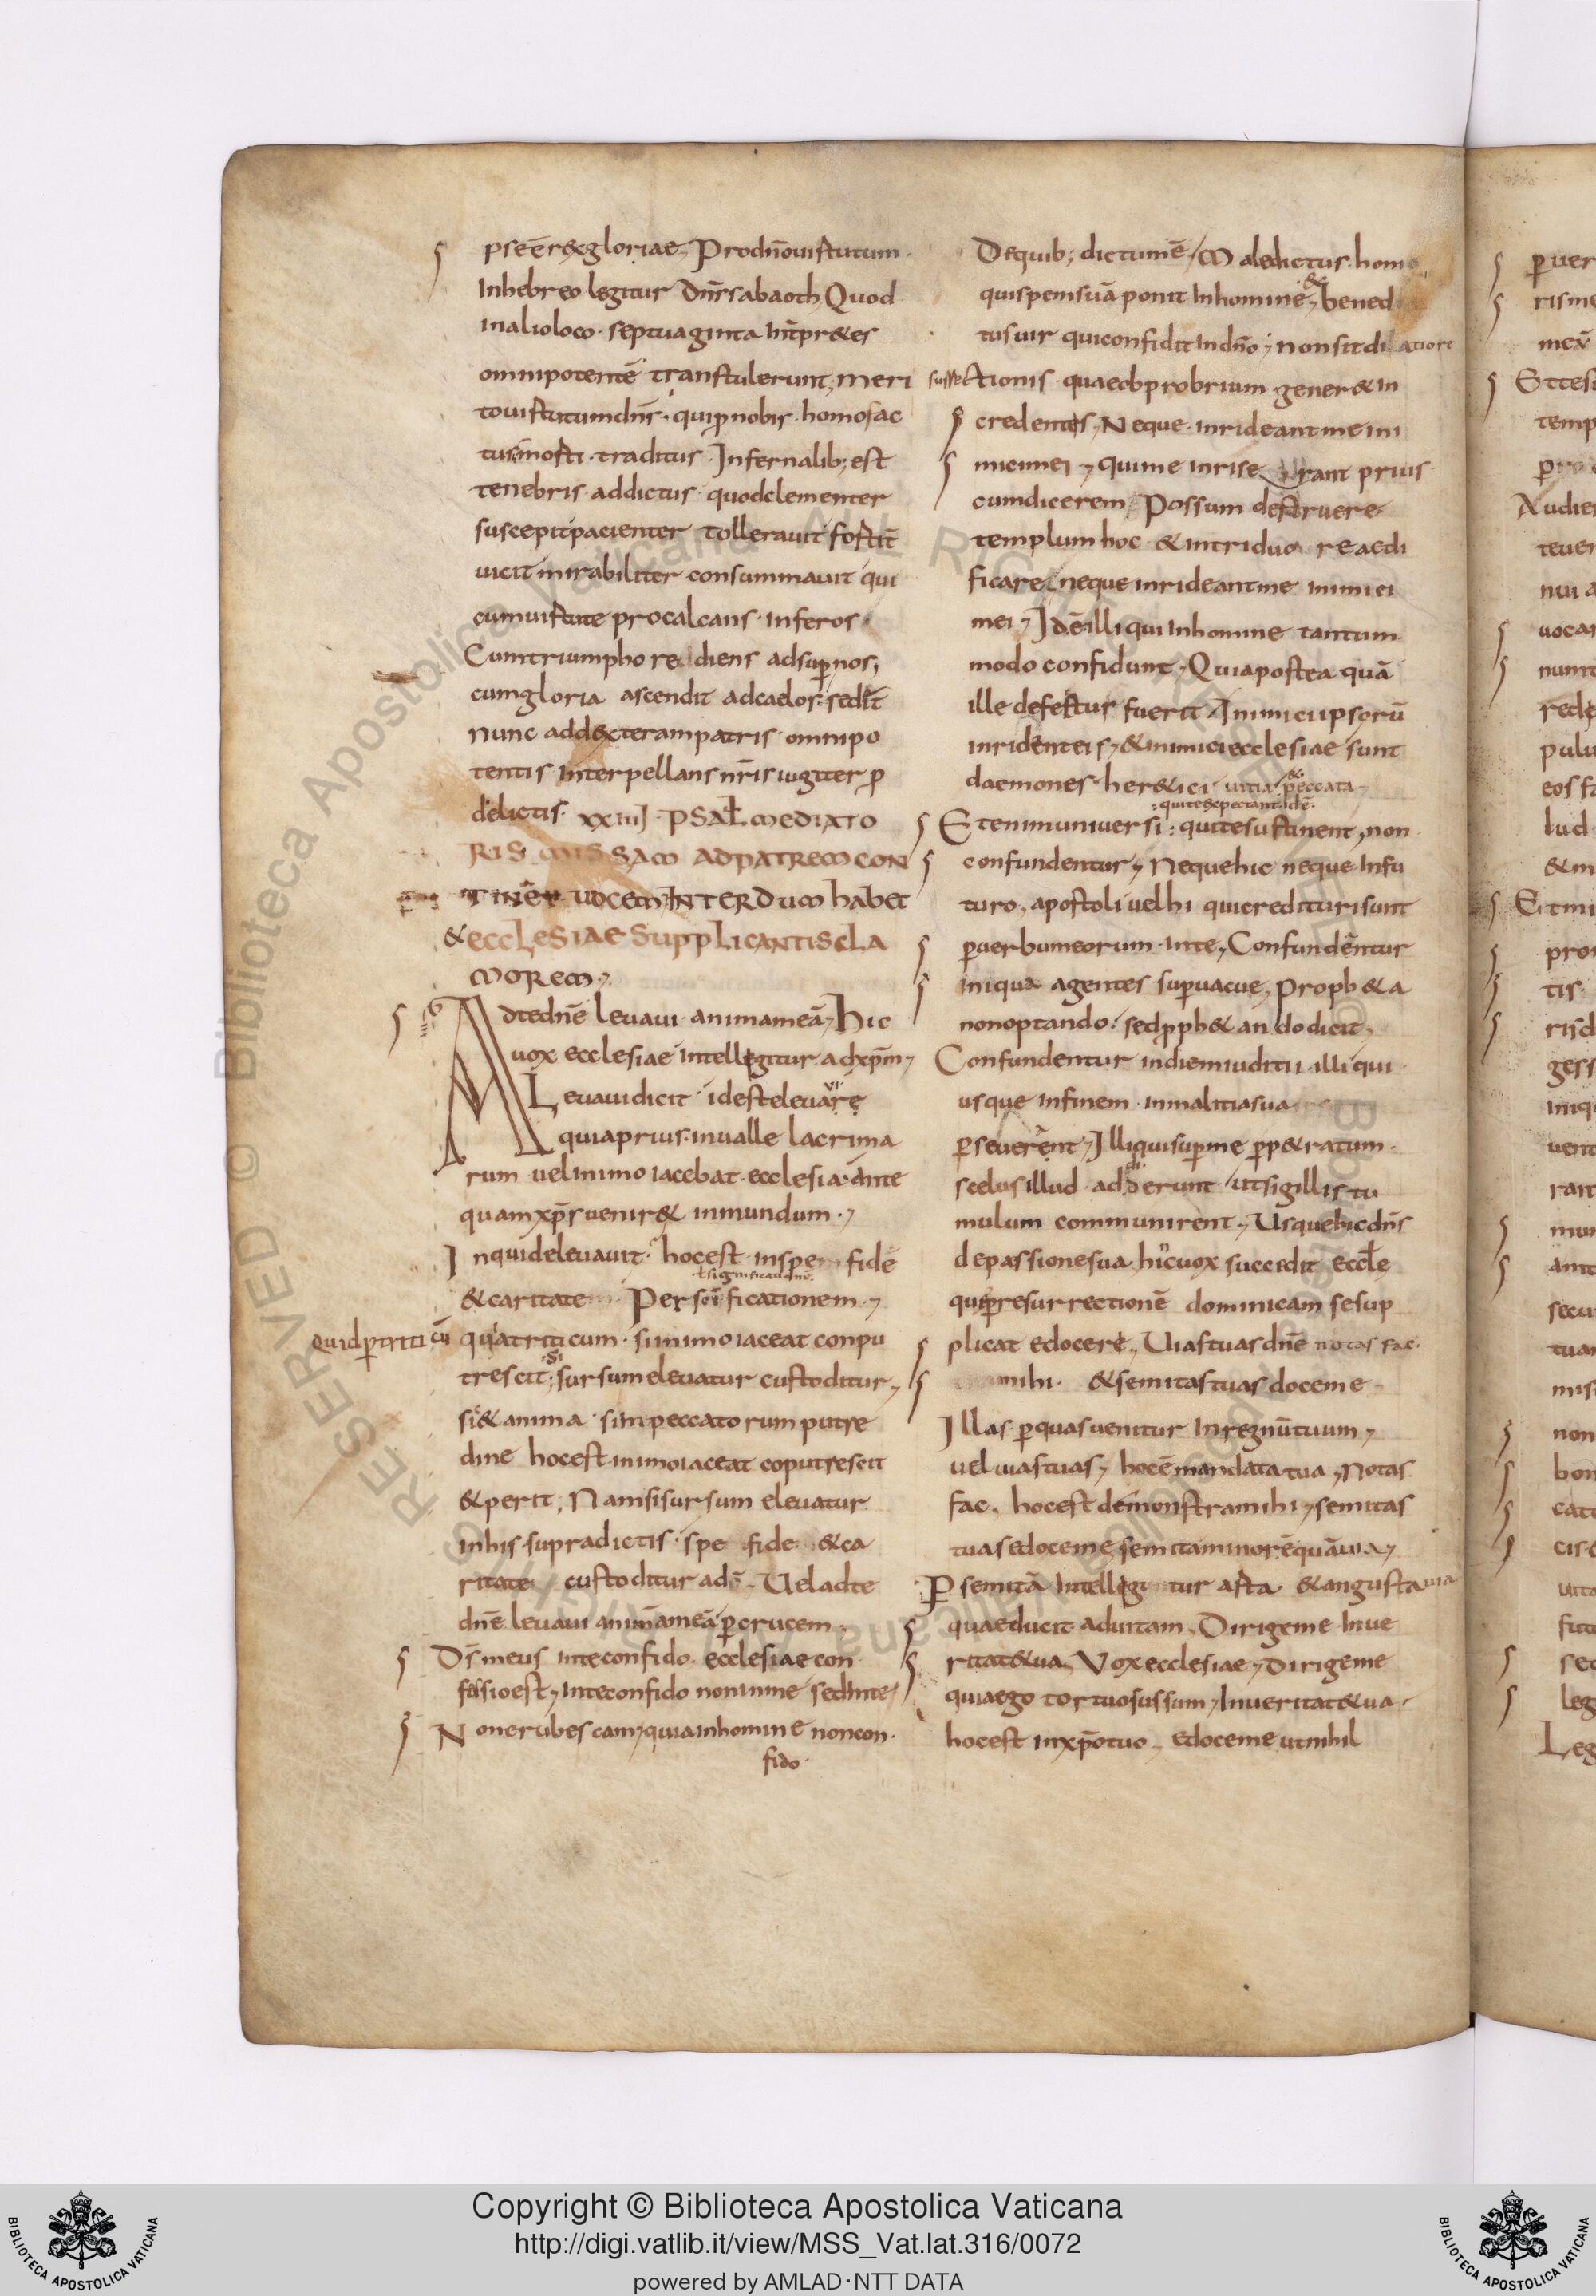 pse ē rex gloriae, Pro dn̄o uirtutum
In hebreo legitur dn̄s sabaoth, Quod
in alio loco septuaginta int̄pr&es
omnipotentē transtulerunt; meri
to uirtutum dn̄s, qui ꝓ nobis homo fac
tus morti traditus Infernalib; est
tenebris addictus quod clementer
suscepit pacienter tollerauit fortit̄
uicit mirabiliter consummauit qui
cum uirtute procalcans inferos
Cum triumpho rediens ad supnos,
cum gloria ascendit ad caelos sed&
nunc ad dexteram patris omnipo
tentis Interpellans nr̄is iugiter ꝓ
delictis. xxiiij PSAL mediato
ris missam ad patrem con
tin& uocem INTERDum habet
& ecclesiae supplicantis cla
morem.
Ad te dn̄e leuaui animam meā, Hic
uox ecclesiae intellegitur ad xp̄m,
Leuaui dicit id est eleuare
quia prius in ualle lacrima
rum uel in imo iacebat ecclesia ante
quam xp̄s uenir& in mundum.
In quid eleuauit hoc est in spem fidē
& caritate Per significationem
quid ꝑ triticū qua triticum si in imo iaceat conpu
trescit, si sursum eleuatur custoditur,
sic & anima si in peccatorum putre
dine hoc est in imo iaceat coputrescit
& perit, Nam si sursum eleuatur
in his supradictis spe fide & ca
ritate custoditur ad Uel ad te
dn̄e leuaui animam meā ꝑ crucem,
Ds̄ meus in te confido, ecclesiae con
fessio est, in te confido non in me sed in te
Non erubescam, quia in homine non con
fido.
De quib; dictum ē, Maledictus homo
qui spem suā ponit In homine, & bened
tus uir qui confidit In dn̄o, non sit dilatio re
surrectionis quae obprobrium gener& in
credentes, Neque inrideant me ini
mici mei, qui me inriserant prius
cum dicerem Possum destruere
templum hoc & in triduo reaedi
ficare, neque inrideant me inimici
mei, Idē illi qui In homine tantum
modo confidunt, Quia postea quā
ille defectus fuerit Inimici ipsorū
inridentes, & inimici ecclesiae sunt
daemones her&ici uitia & peccata
qui te expectant dn̄e
Etenim uniuersi qui te sustinent, non
confundentur, Neque hic neque In fu
turo, apostoli uel hi qui credituri sunt
ꝑ uerbum eorum in te, Confundantur
iniqua agentes supuacue, Proph&a
non optando, sed proph&ando dicit,
Confundentur in diem iuditii illi qui
usque in finem in malitia sua
ꝑseuerent, Illi qui super me perp&ratum
scelus illud addiderunt ut sigillis tu
mulum communirent, Usque hic dn̄s
de passione sua hinc uox succedit eccle
que per resurrectionē dominicam se sup
plicat edocere, Uias tuas dn̄e notas fac
mihi & semitas tuas doce me
Illas ꝑ quas uenitur In regnū tuum,
uel uias tuas, hoc ē mandata tua, Notas
fac, hoc est demonstra mihi, semitas
tuas edoce me, semita minor ē quā uia,
ꝑ semitā Intellegitur arta & angusta uia
quae ducit ad uitam, Dirige me In ue
ritate tua, Vox ecclesiae, Dirige me
quia ego tortuosus sum, In ueritate tua
hoc est in xp̄o tuo, edoce me ut nihil
Copyright © Biblioteca Apostolica Vaticana
http://digi.vatlib.it/view/MSS_Vat.lat.316/0072
powered by AMLAD·NTT DATA